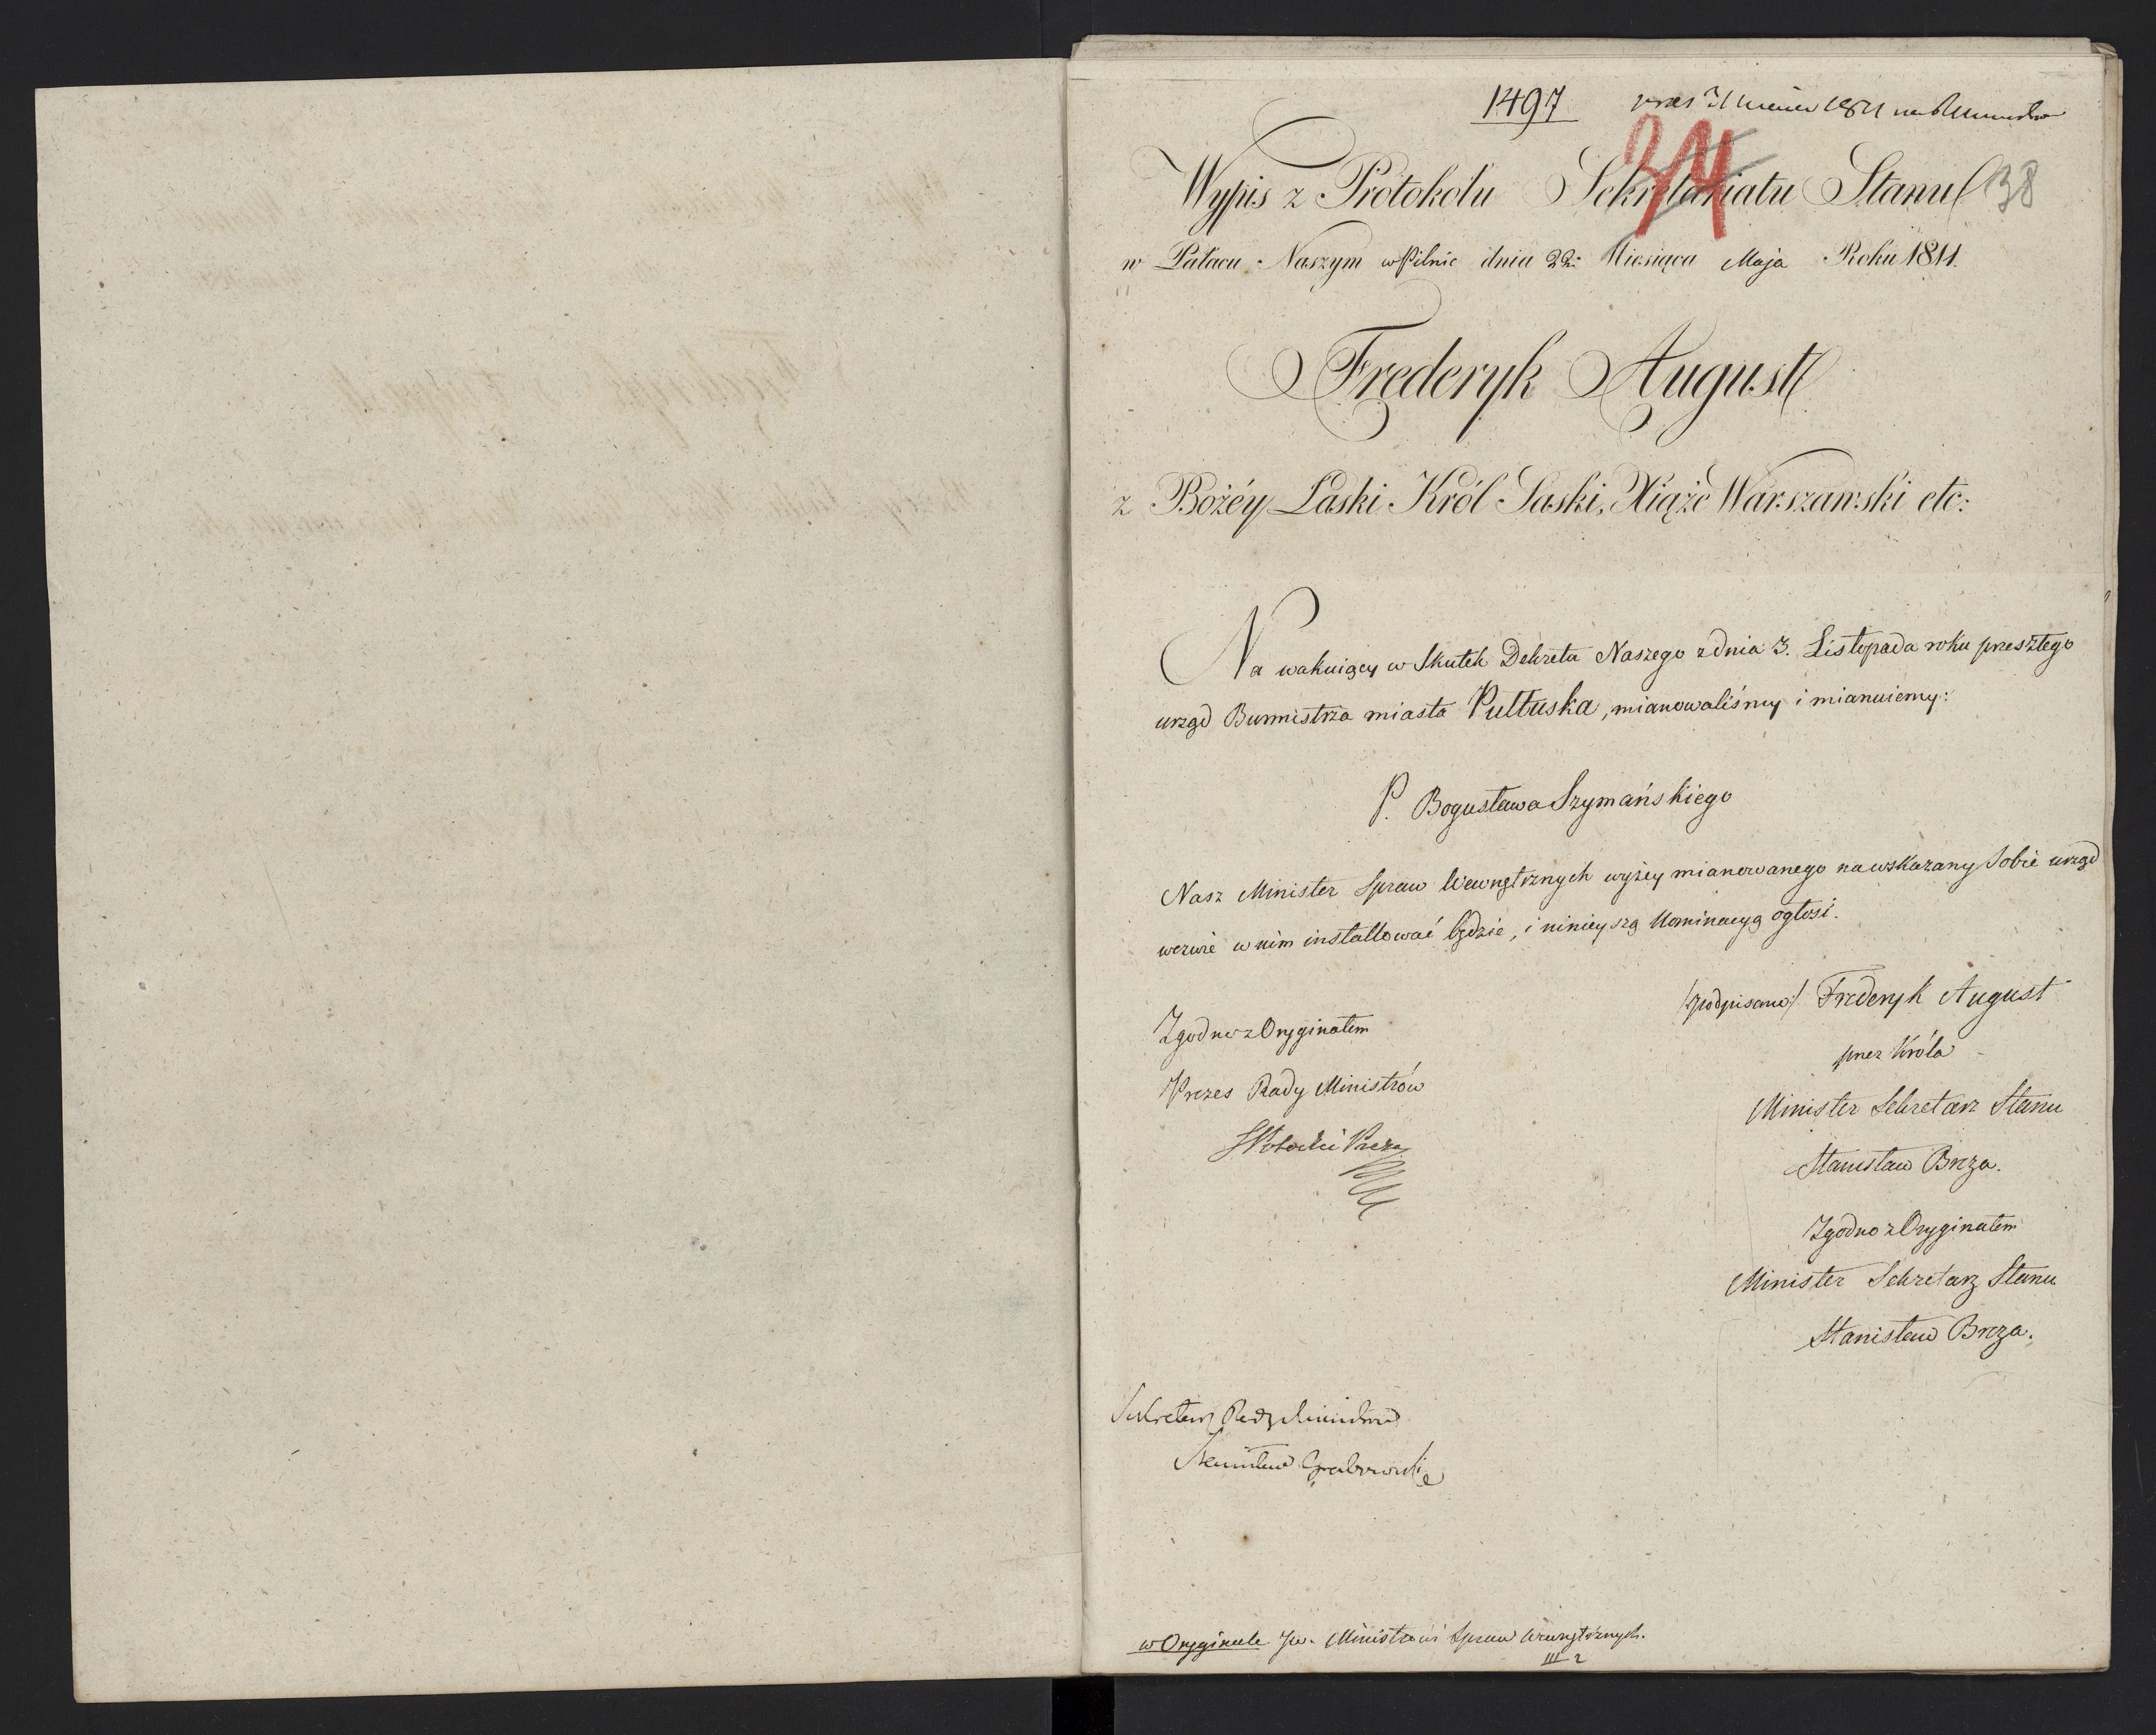 1497
24
38
Wypis z Protokołu Sekretariatu Stanu
w Pałacu Naszym w Pilnic dnia 22. Miesiąca Maja Roku 1811.
Frederyk August
z Bożéy Łaski Król Saski, Xiążę Warszawski etc:
Na wakuiący w Skutek Dekretu Naszego z dnia 3. Listopada roku przeszłego
urząd Burmistrza miasta Pułtuska, mianowaliśmy i mianuiemy:
P. Bogusława Szymańskiego
Nasz Minister Spraw Wewnętrznych wyżey mianowanego na wskazany sobie urząd
wezwie w nim installować będzie, i ninieyszą Nominacyą ogłosi.
/podpisano/ Frederyk August
przez Króla
Minister Sekretarz Stanu
Stanisław Breza.
Zgodno z Oryginałem
Minister Sekretarz Stanu
Stanisław Breza.
Zgodno z Oryginałem
Prezes Rady Ministrów
Potocki Prezes
Sekretarz Rady Ministrów
Stanisław Grabowski
w Oryginale JW. Ministrowi Spraw Wewnętrznych.
III 2